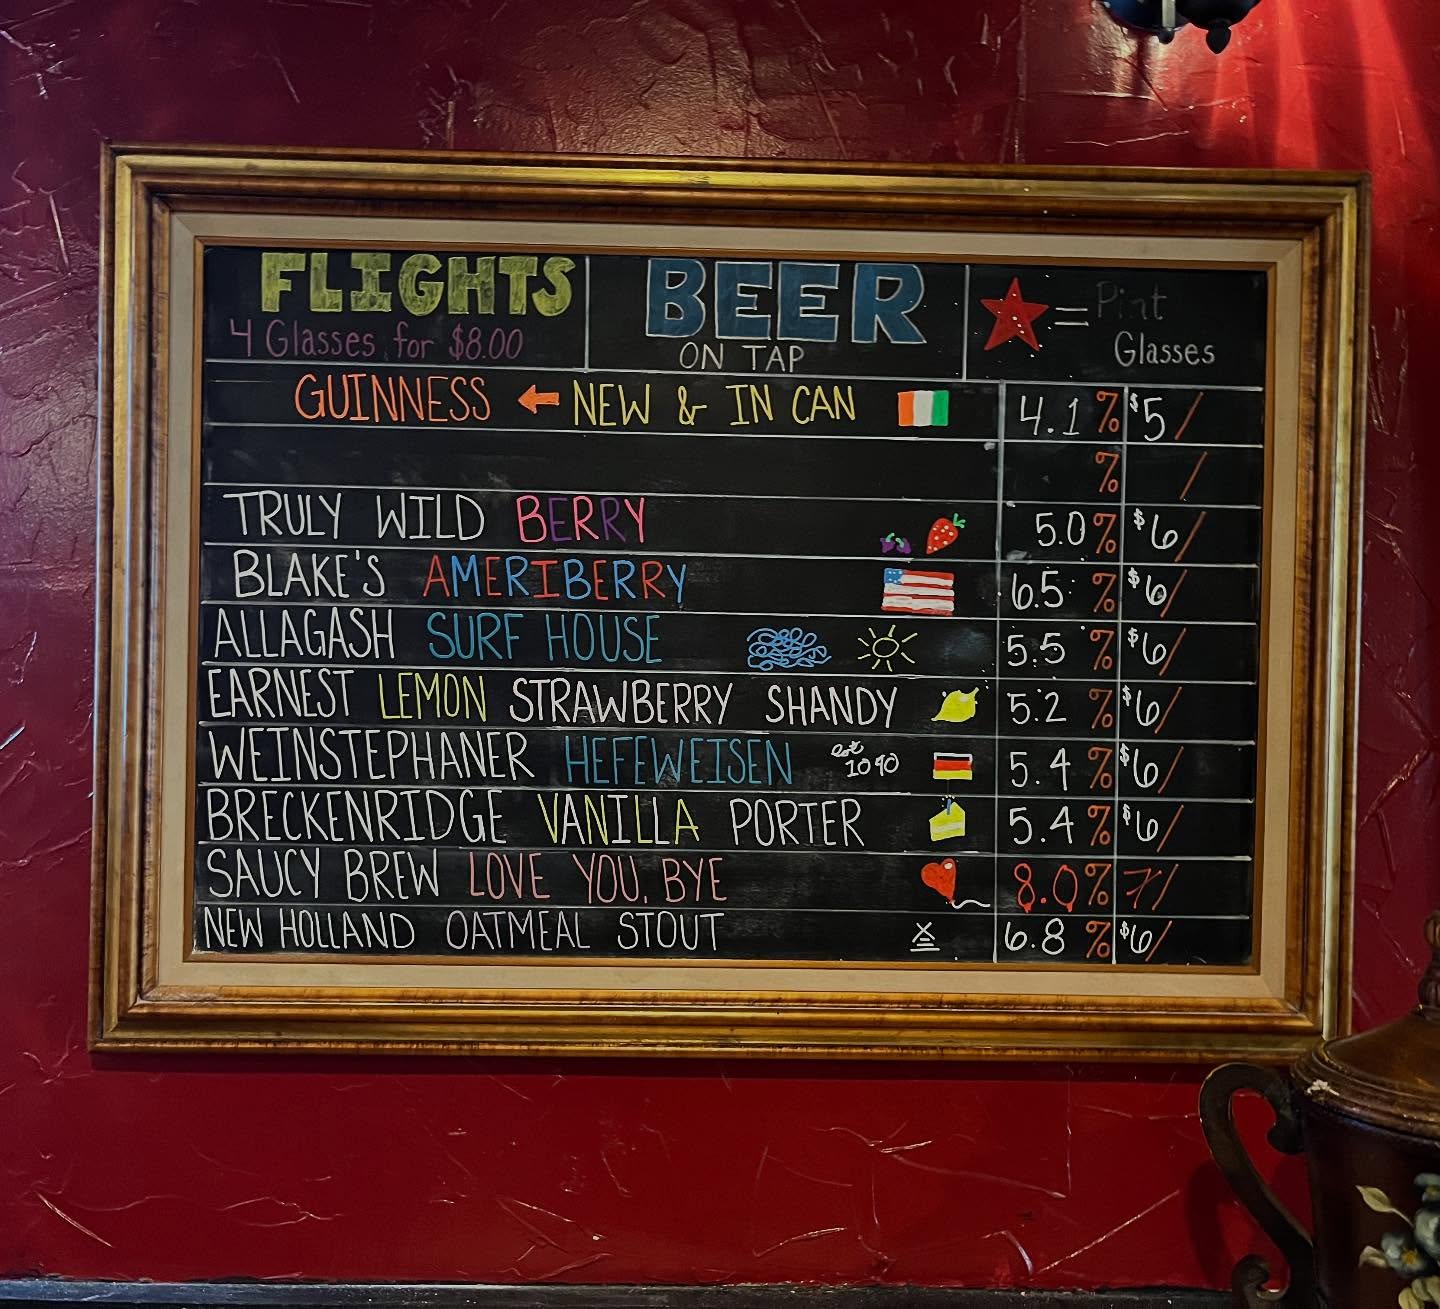 FLIGHTS
4 Glasses for $8.00
BEER
ON TAP
= Pint
Glasses
GUINNESS ← NEW & IN CAN 4.1 % $5 /
% /
TRULY WILD BERRY 5.0 % $6 /
BLAKE'S AMERIBERRY 6.5 % $6 /
ALLAGASH SURF HOUSE 5.5 % $6 /
EARNEST LEMON STRAWBERRY SHANDY 5.2 % $6 /
WEINSTEPHANER HEFEWEISEN est 1090 5.4 % $6 /
BRECKENRIDGE VANILLA PORTER 5.4 % $6 /
SAUCY BREW LOVE YOU, BYE 8.0 % 7 /
NEW HOLLAND OATMEAL STOUT 6.8 % $6 /